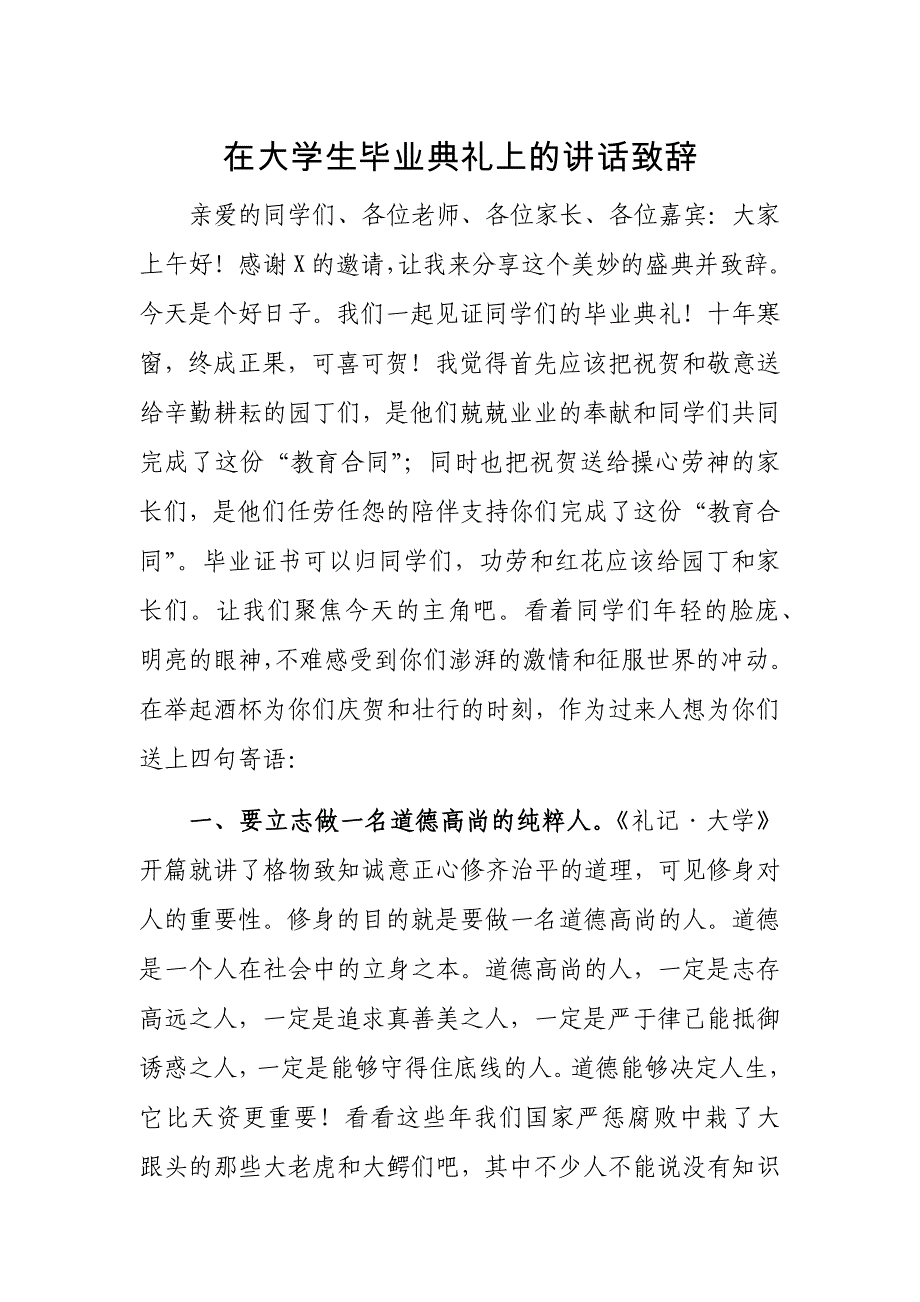 在大学生毕业典礼上的讲话致辞
亲爱的同学们、各位老师、各位家长、各位嘉宾：大家
上午好！感谢X的邀请，让我来分享这个美妙的盛典并致辞。
今天是个好日子。我们一起见证同学们的毕业典礼！十年寒
窗，终成正果，可喜可贺！我觉得首先应该把祝贺和敬意送
给辛勤耕耘的园丁们，是他们兢兢业业的奉献和同学们共同
完成了这份“教育合同”；同时也把祝贺送给操心劳神的家
长们，是他们任劳任怨的陪伴支持你们完成了这份“教育合
同”。毕业证书可以归同学们，功劳和红花应该给园丁和家
长们。让我们聚焦今天的主角吧。看着同学们年轻的脸庞、
明亮的眼神，不难感受到你们澎湃的激情和征服世界的冲动。
在举起酒杯为你们庆贺和壮行的时刻，作为过来人想为你们
送上四句寄语：
一、要立志做一名道德高尚的纯粹人。《礼记·大学》
开篇就讲了格物致知诚意正心修齐治平的道理，可见修身对
人的重要性。修身的目的就是要做一名道德高尚的人。道德
是一个人在社会中的立身之本。道德高尚的人，一定是志存
高远之人，一定是追求真善美之人，一定是严于律己能抵御
诱惑之人，一定是能够守得住底线的人。道德能够决定人生，
它比天资更重要！看看这些年我们国家严惩腐败中栽了大
跟头的那些大老虎和大鳄们吧，其中不少人不能说没有知识